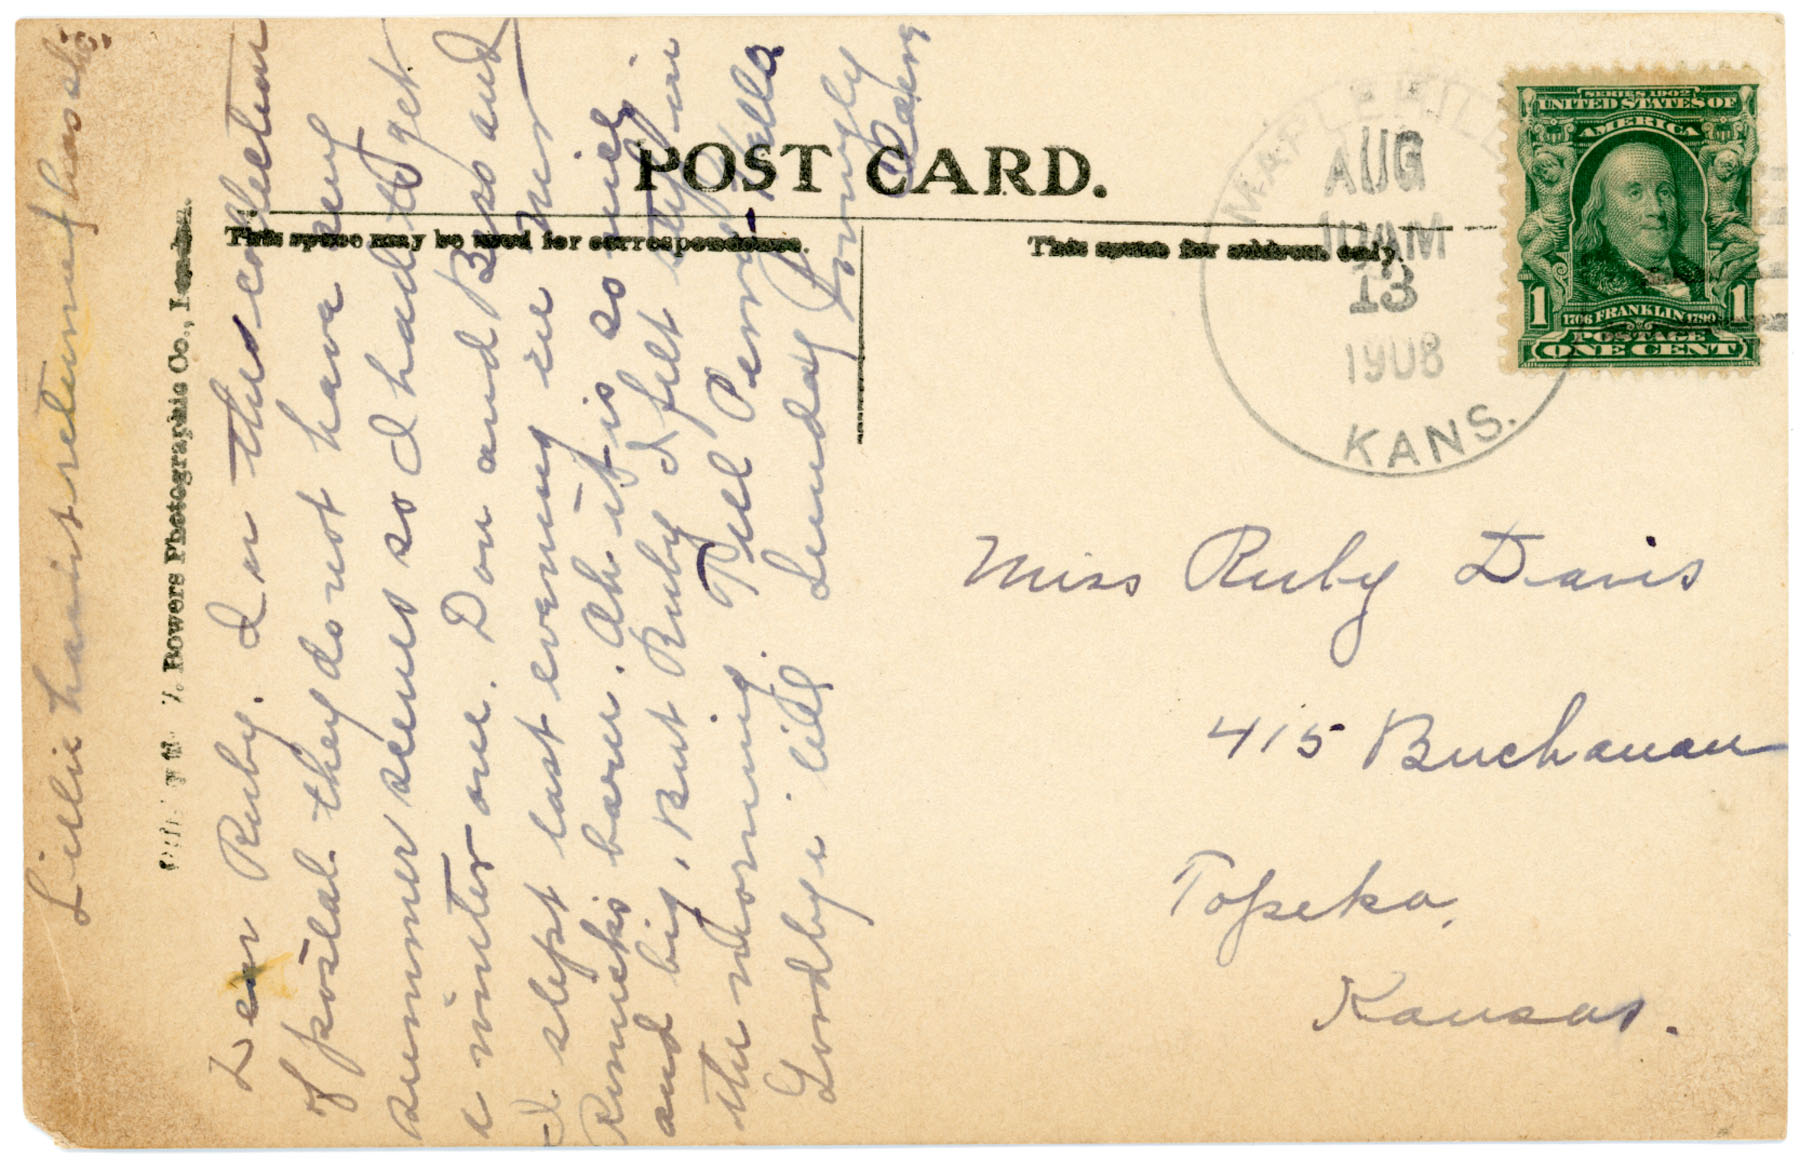 POST CARD.
This space may be used for correspondence.
This space for address only.
MAPLE HILL
AUG
10 AM
13
1908
KANS.
SERIES 1902
UNITED STATES OF
AMERICA
1 1
1706 FRANKLIN 1790
POSTAGE
ONE CENT
Miss Ruby Davis
415 Buchanan
Topeka,
Kansas.
Bowers Photographic Co.,
Lillie haint return f has
Dear Ruby. In this collection
of postal they do not have any
summer scenes so I had to get
a winter one. Don and Bess and
I slept last evening in mr
Romicks barn. Oh it is so nice
and big, But Ruby I felt sleepy in
the morning. Tell Perry Hello
Goodbye till Sunday Lovingly